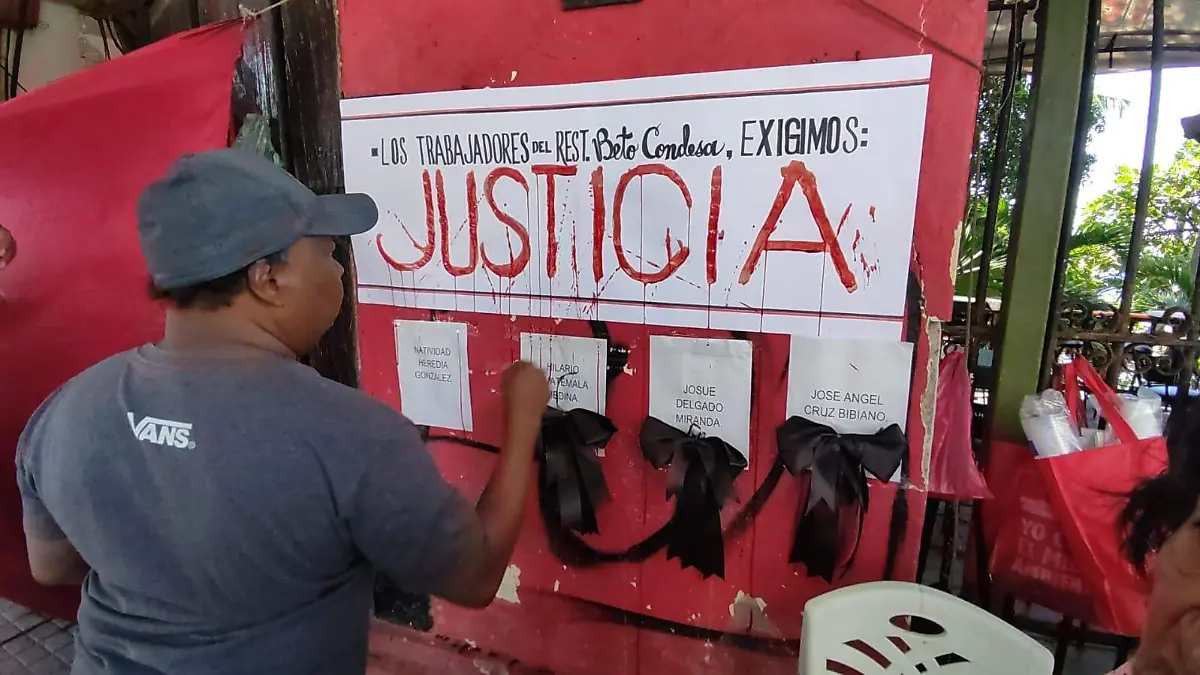 ▪LOS TRABAJADORES DEL REST. Beto Condesa, EXIGIMOS:
JUSTICIA
NATIVIDAD
HEREDIA
GONZALEZ.
HILARIO
MEDINA
JOSUE
DELGADO
MIRANDA
JOSE ANGEL
CRUZ BIBIANO.
VANS
YO